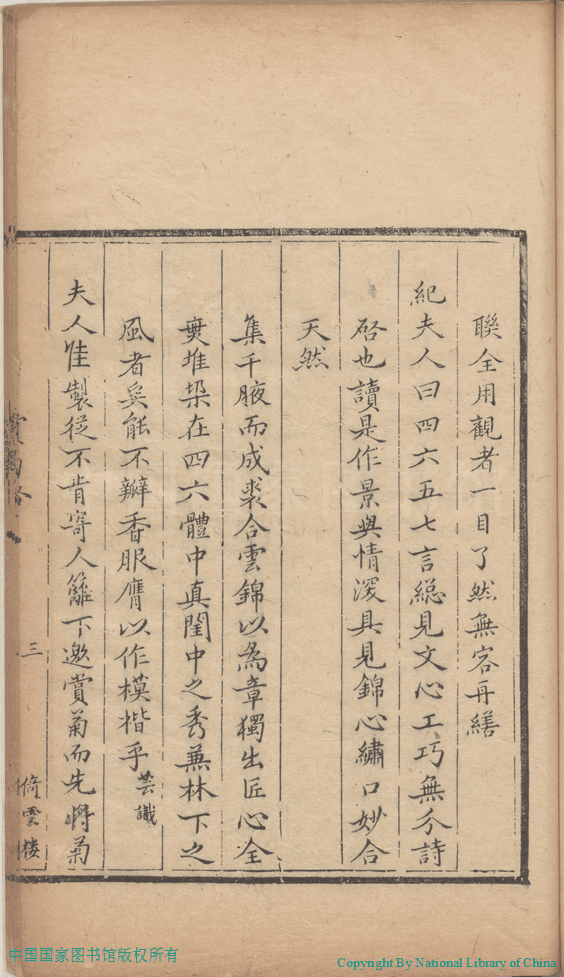 聯全用觀者一目了然無容再繕
紀夫人曰四六五七言總見文心工巧無分詩
啓也讀是作景與情深具見錦心繡口妙合
天然
集千腋而成裘合雲錦以為章獨出匠心全
無堆垜在四六體中真閨中之秀兼林下之
風者奚能不瓣香服膺以作模楷乎 芸識
夫人佳製從不肯寄人籬下邀賞菊而先將菊
三
倚雲樓
中国国家图书馆版权所有
Copyright By National Library of China